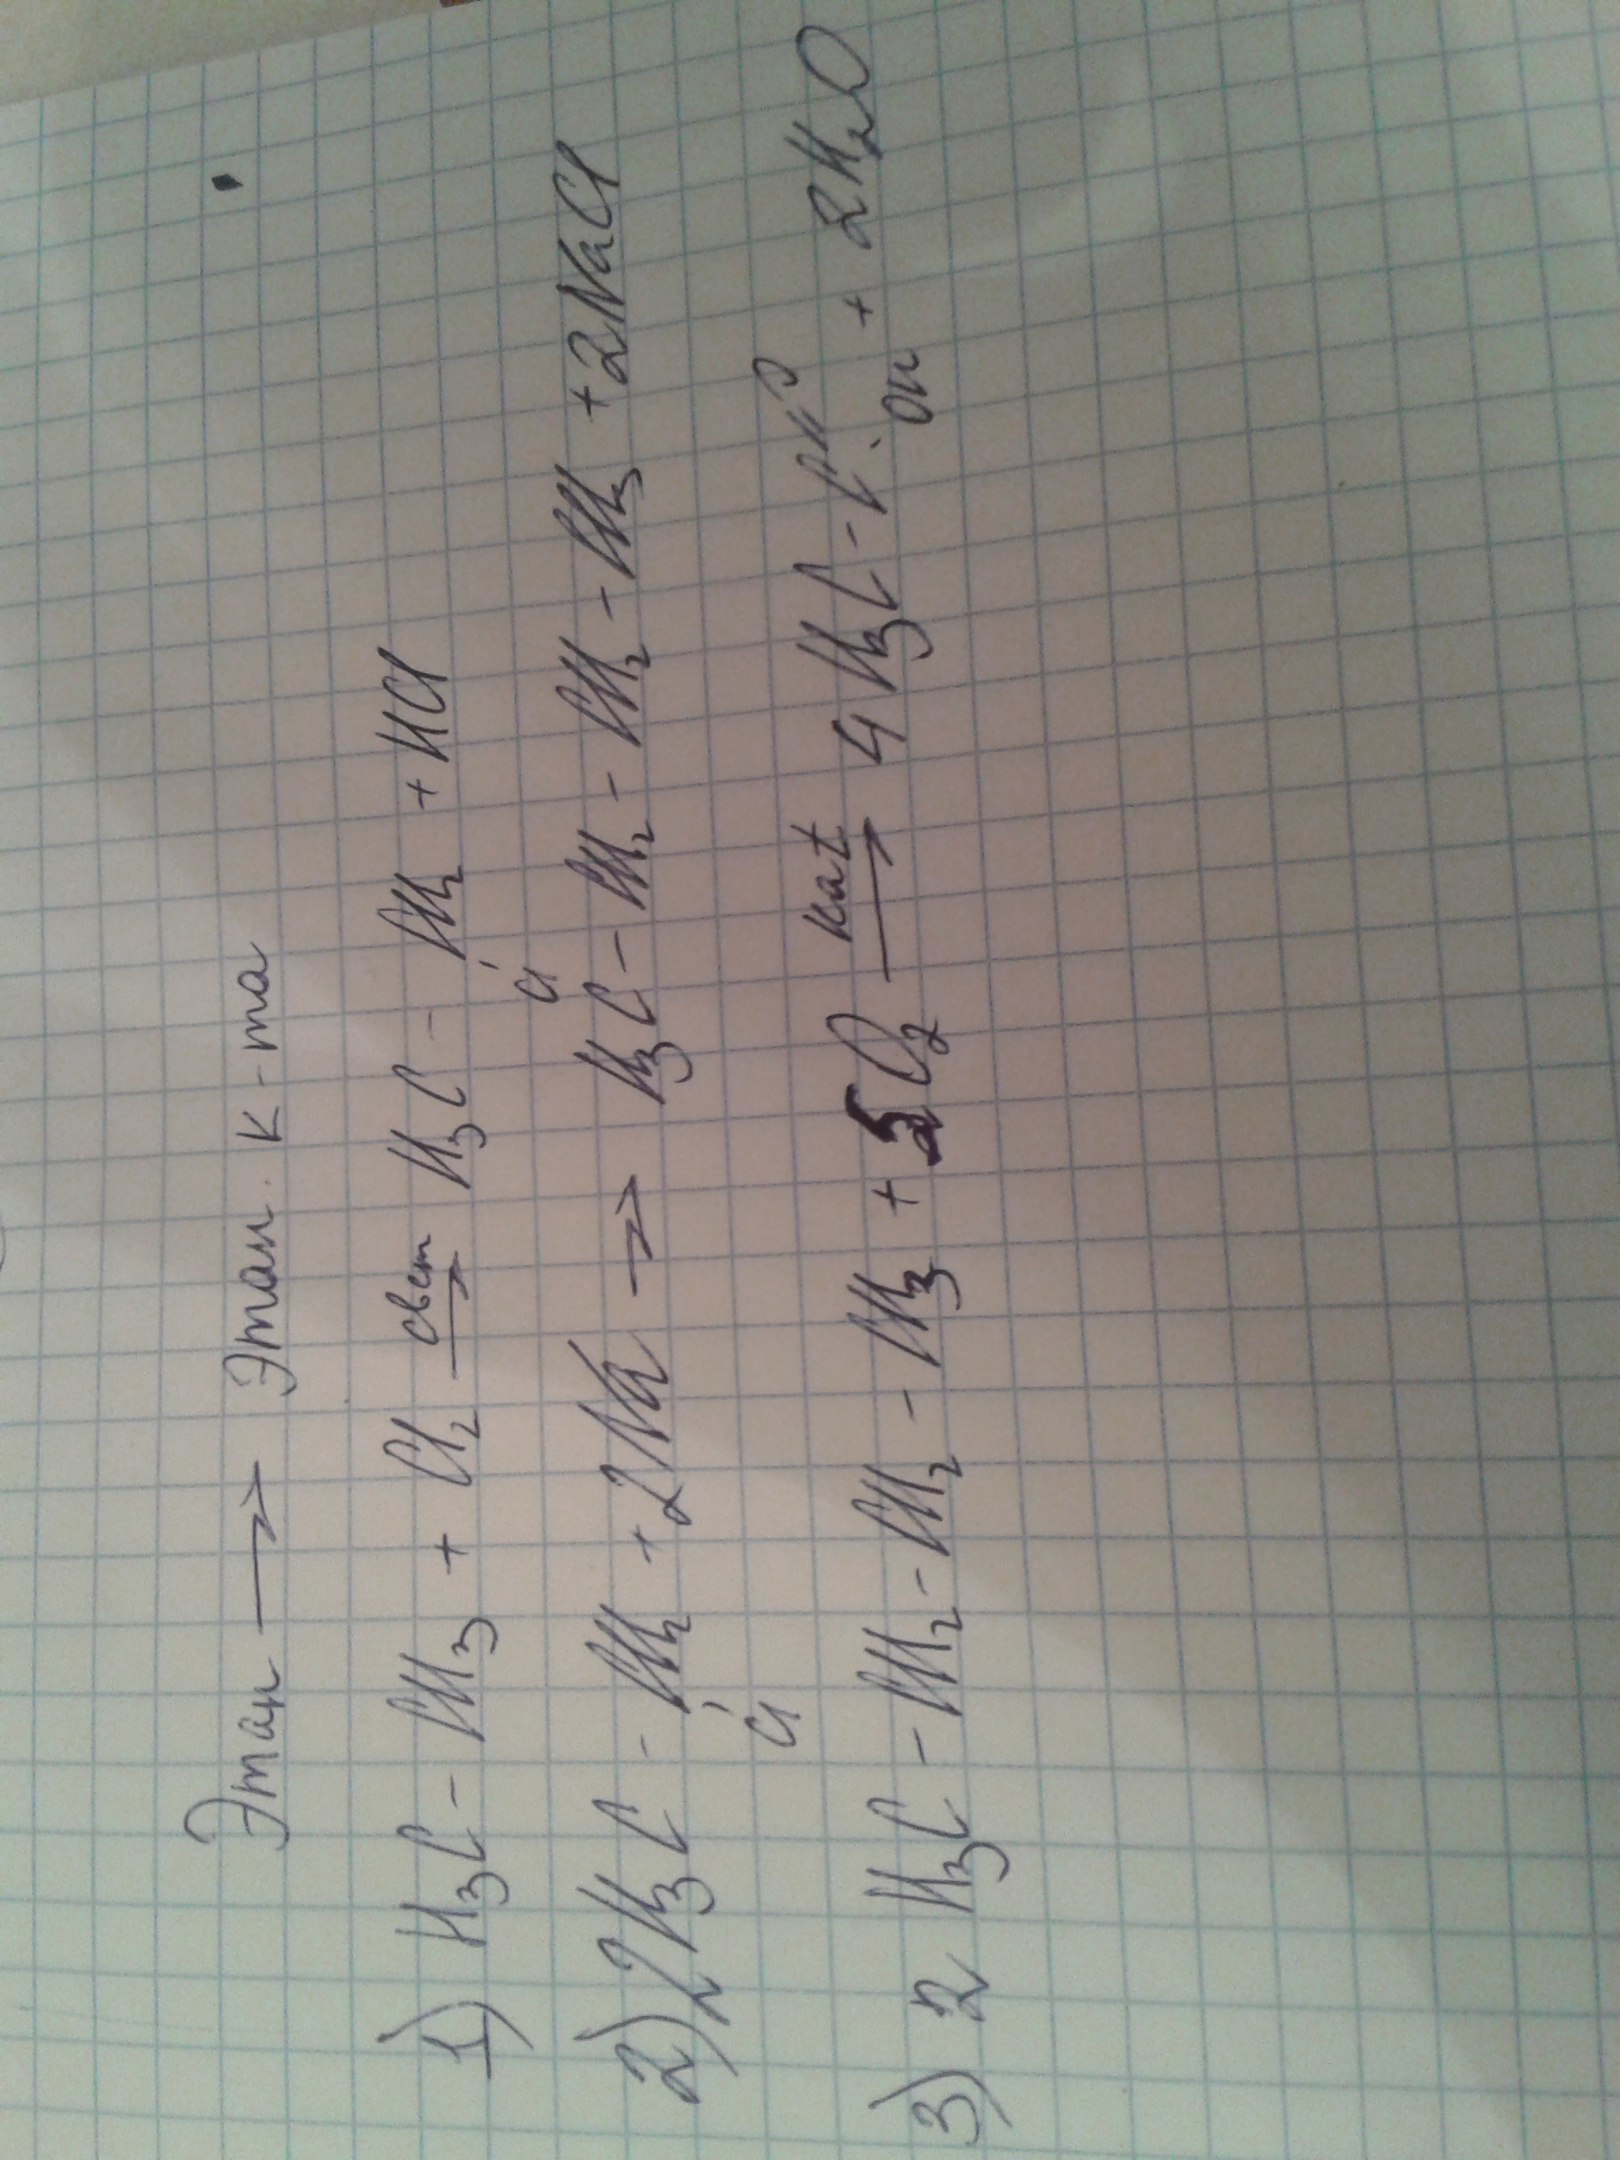 Этан → Этан. к-та
1) H₃C - CH₃ + Cl₂ свет→ H₃C - CH₂ + HCl
Cl
2) 2H₃C - CH₂ + 2Na → H₃C - CH₂ - CH₂ - CH₃ + 2NaCl
Cl
3) 2 H₃C - CH₂ - CH₂ - CH₃ + 5O₂ kat→ 4 H₃C - C = O + 2H₂O
OH